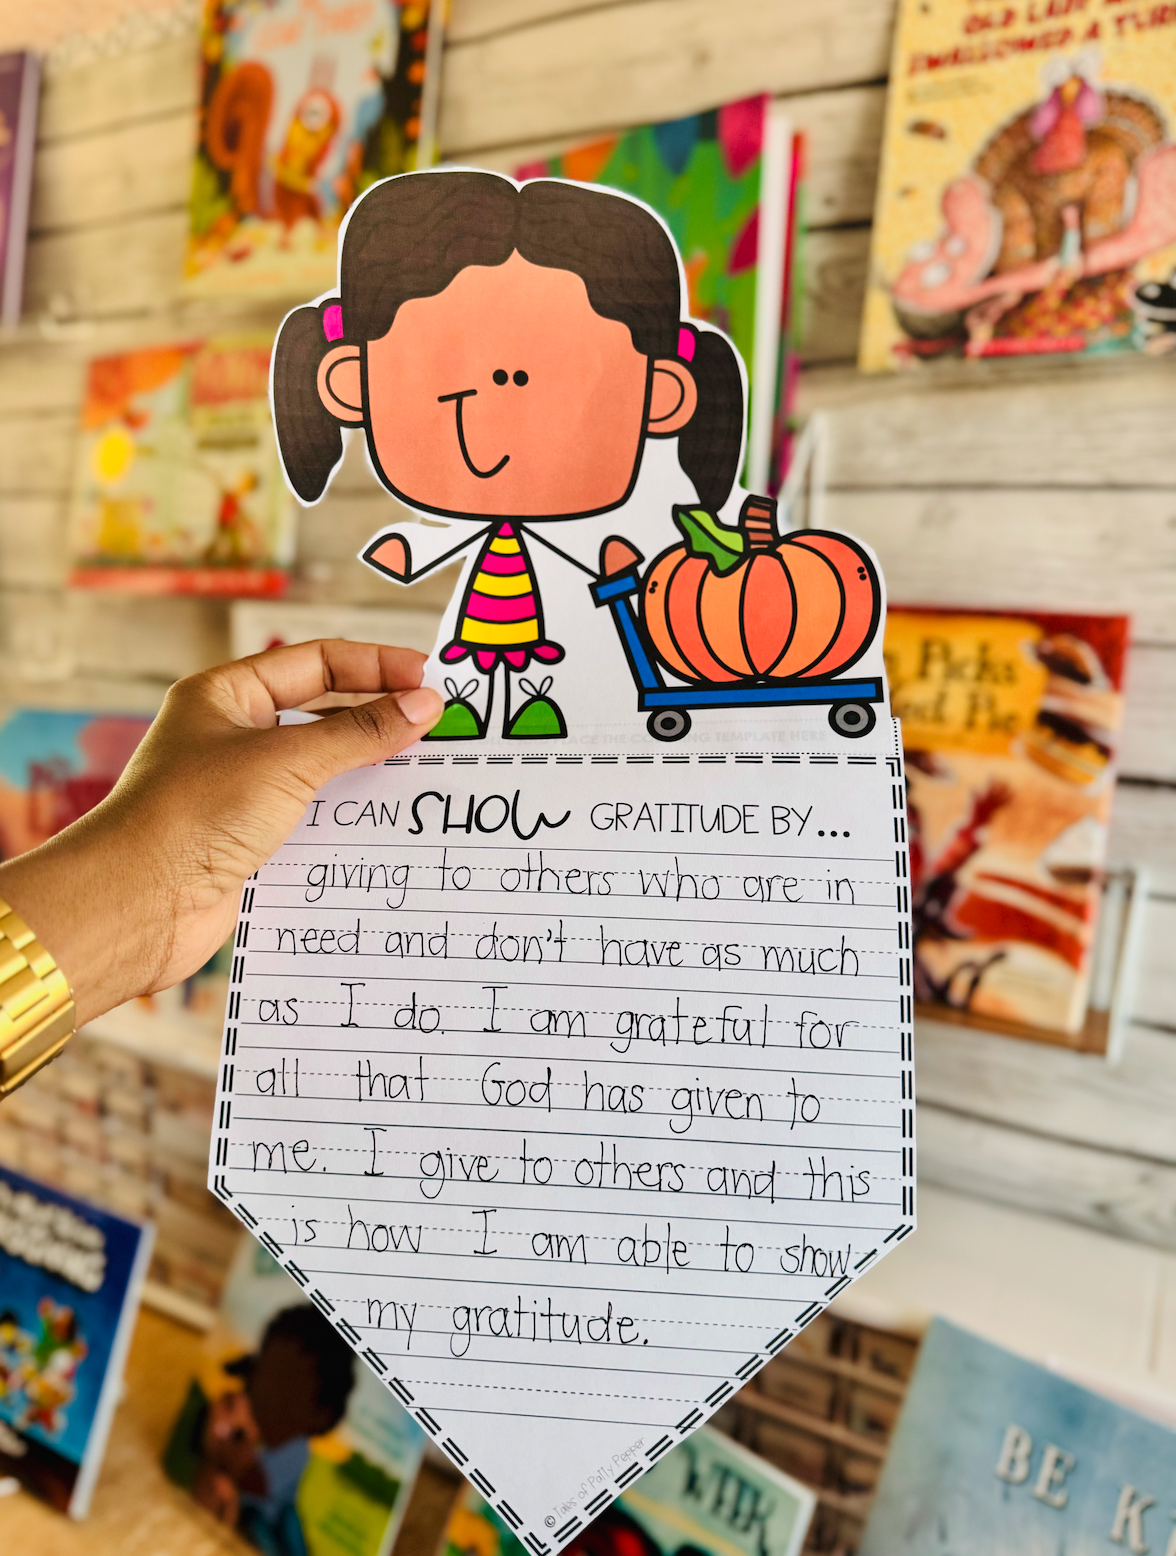 OLD LADY
SWALLOWED A TURKEY
Picks
Pie
PLACE THE COLORING TEMPLATE HERE
I CAN SHOW GRATITUDE BY...
giving to others who are in
need and don't have as much
as I do. I am grateful for
all that God has given to
me. I give to others and this
is how I am able to show
my gratitude.
© Tales of Patty Pepper
WITH
BE K